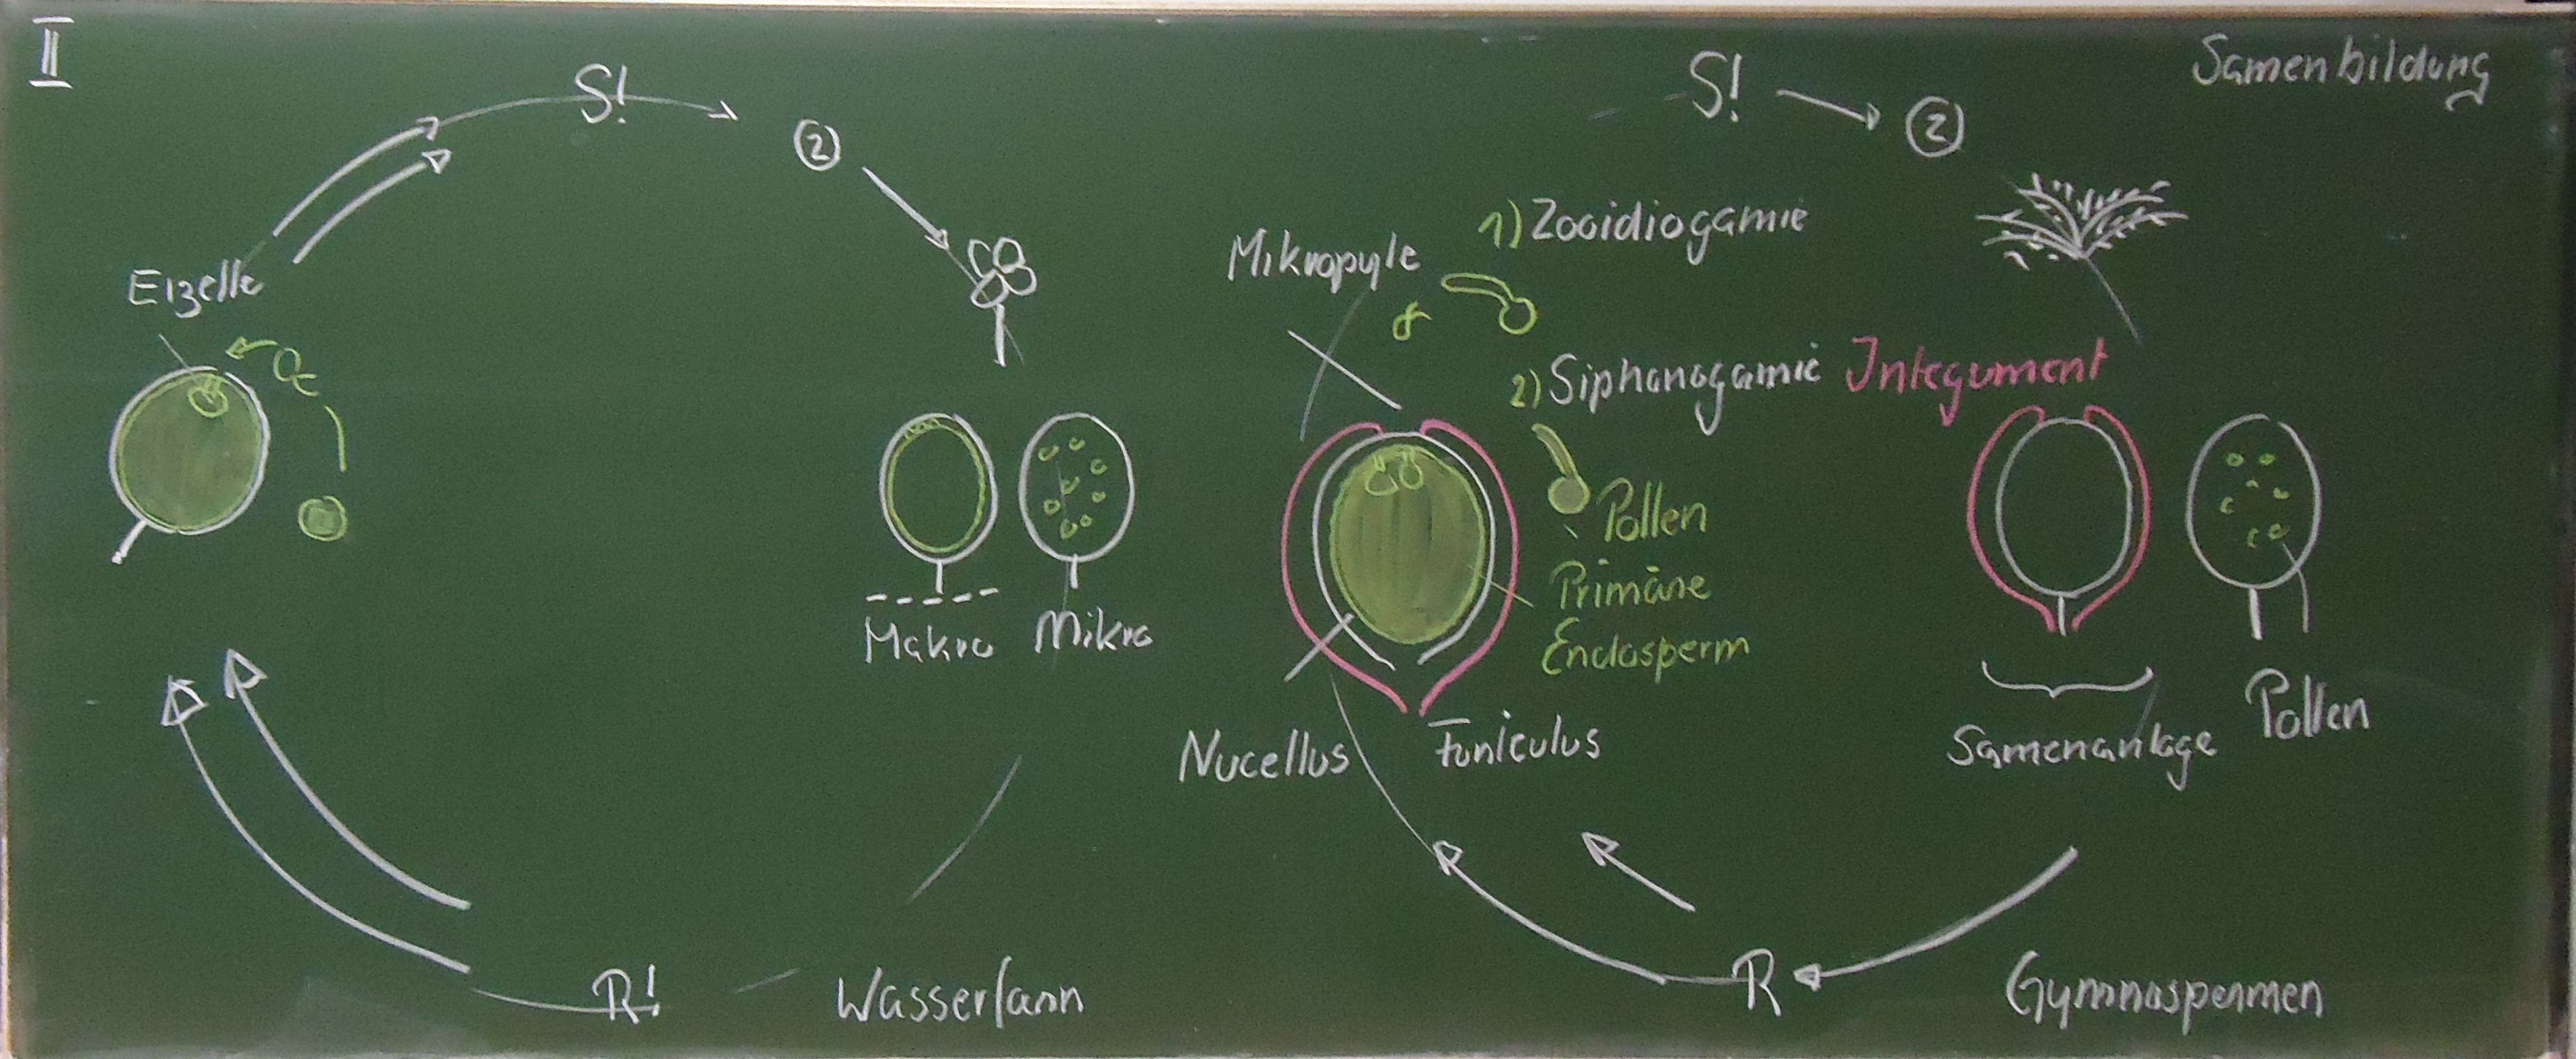 II
S!
②
Eizelle
Makro
Mikro
R!
Wasserfarn
Samenbildung
S!
②
Mikropyle
1) Zooidiogamie
2) Siphonogamie
Integument
Pollen
Primäre
Endosperm
Nucellus
Funiculus
Samenanlage
Pollen
R
Gymnospermen